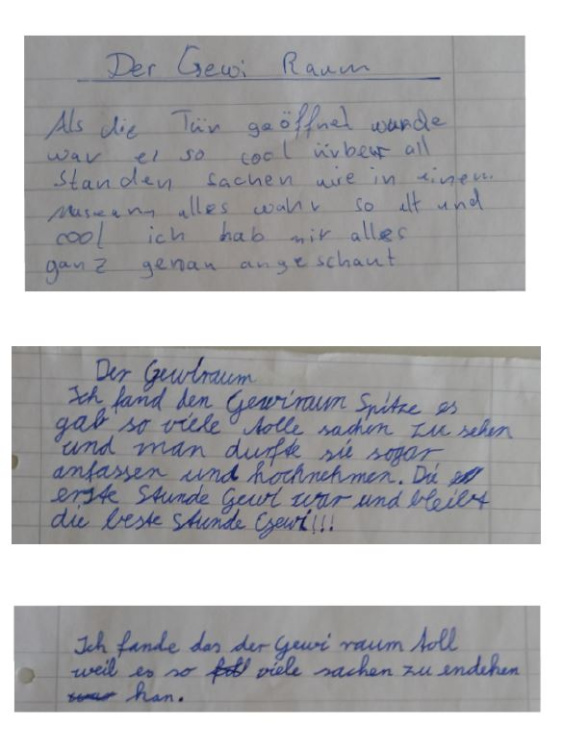 Der Gewi Raum
Als die Tür geöffnet wurde
war es so cool ürber all
standen sachen wie in einem
Museum alles wahr so alt und
cool ich hab mir alles
ganz genau angeschaut
Der Gewiraum
Ich fand den Gewiraum Spitze es
gab so viele tolle sachen zu sehen
und man durfte sie sogar
anfassen und hochnehmen. Die
erste Stunde Gewi war und bleibt
die beste Stunde Gewi!!!
Ich fande das der Gewi raum toll
weil es so viele sachen zu
han.